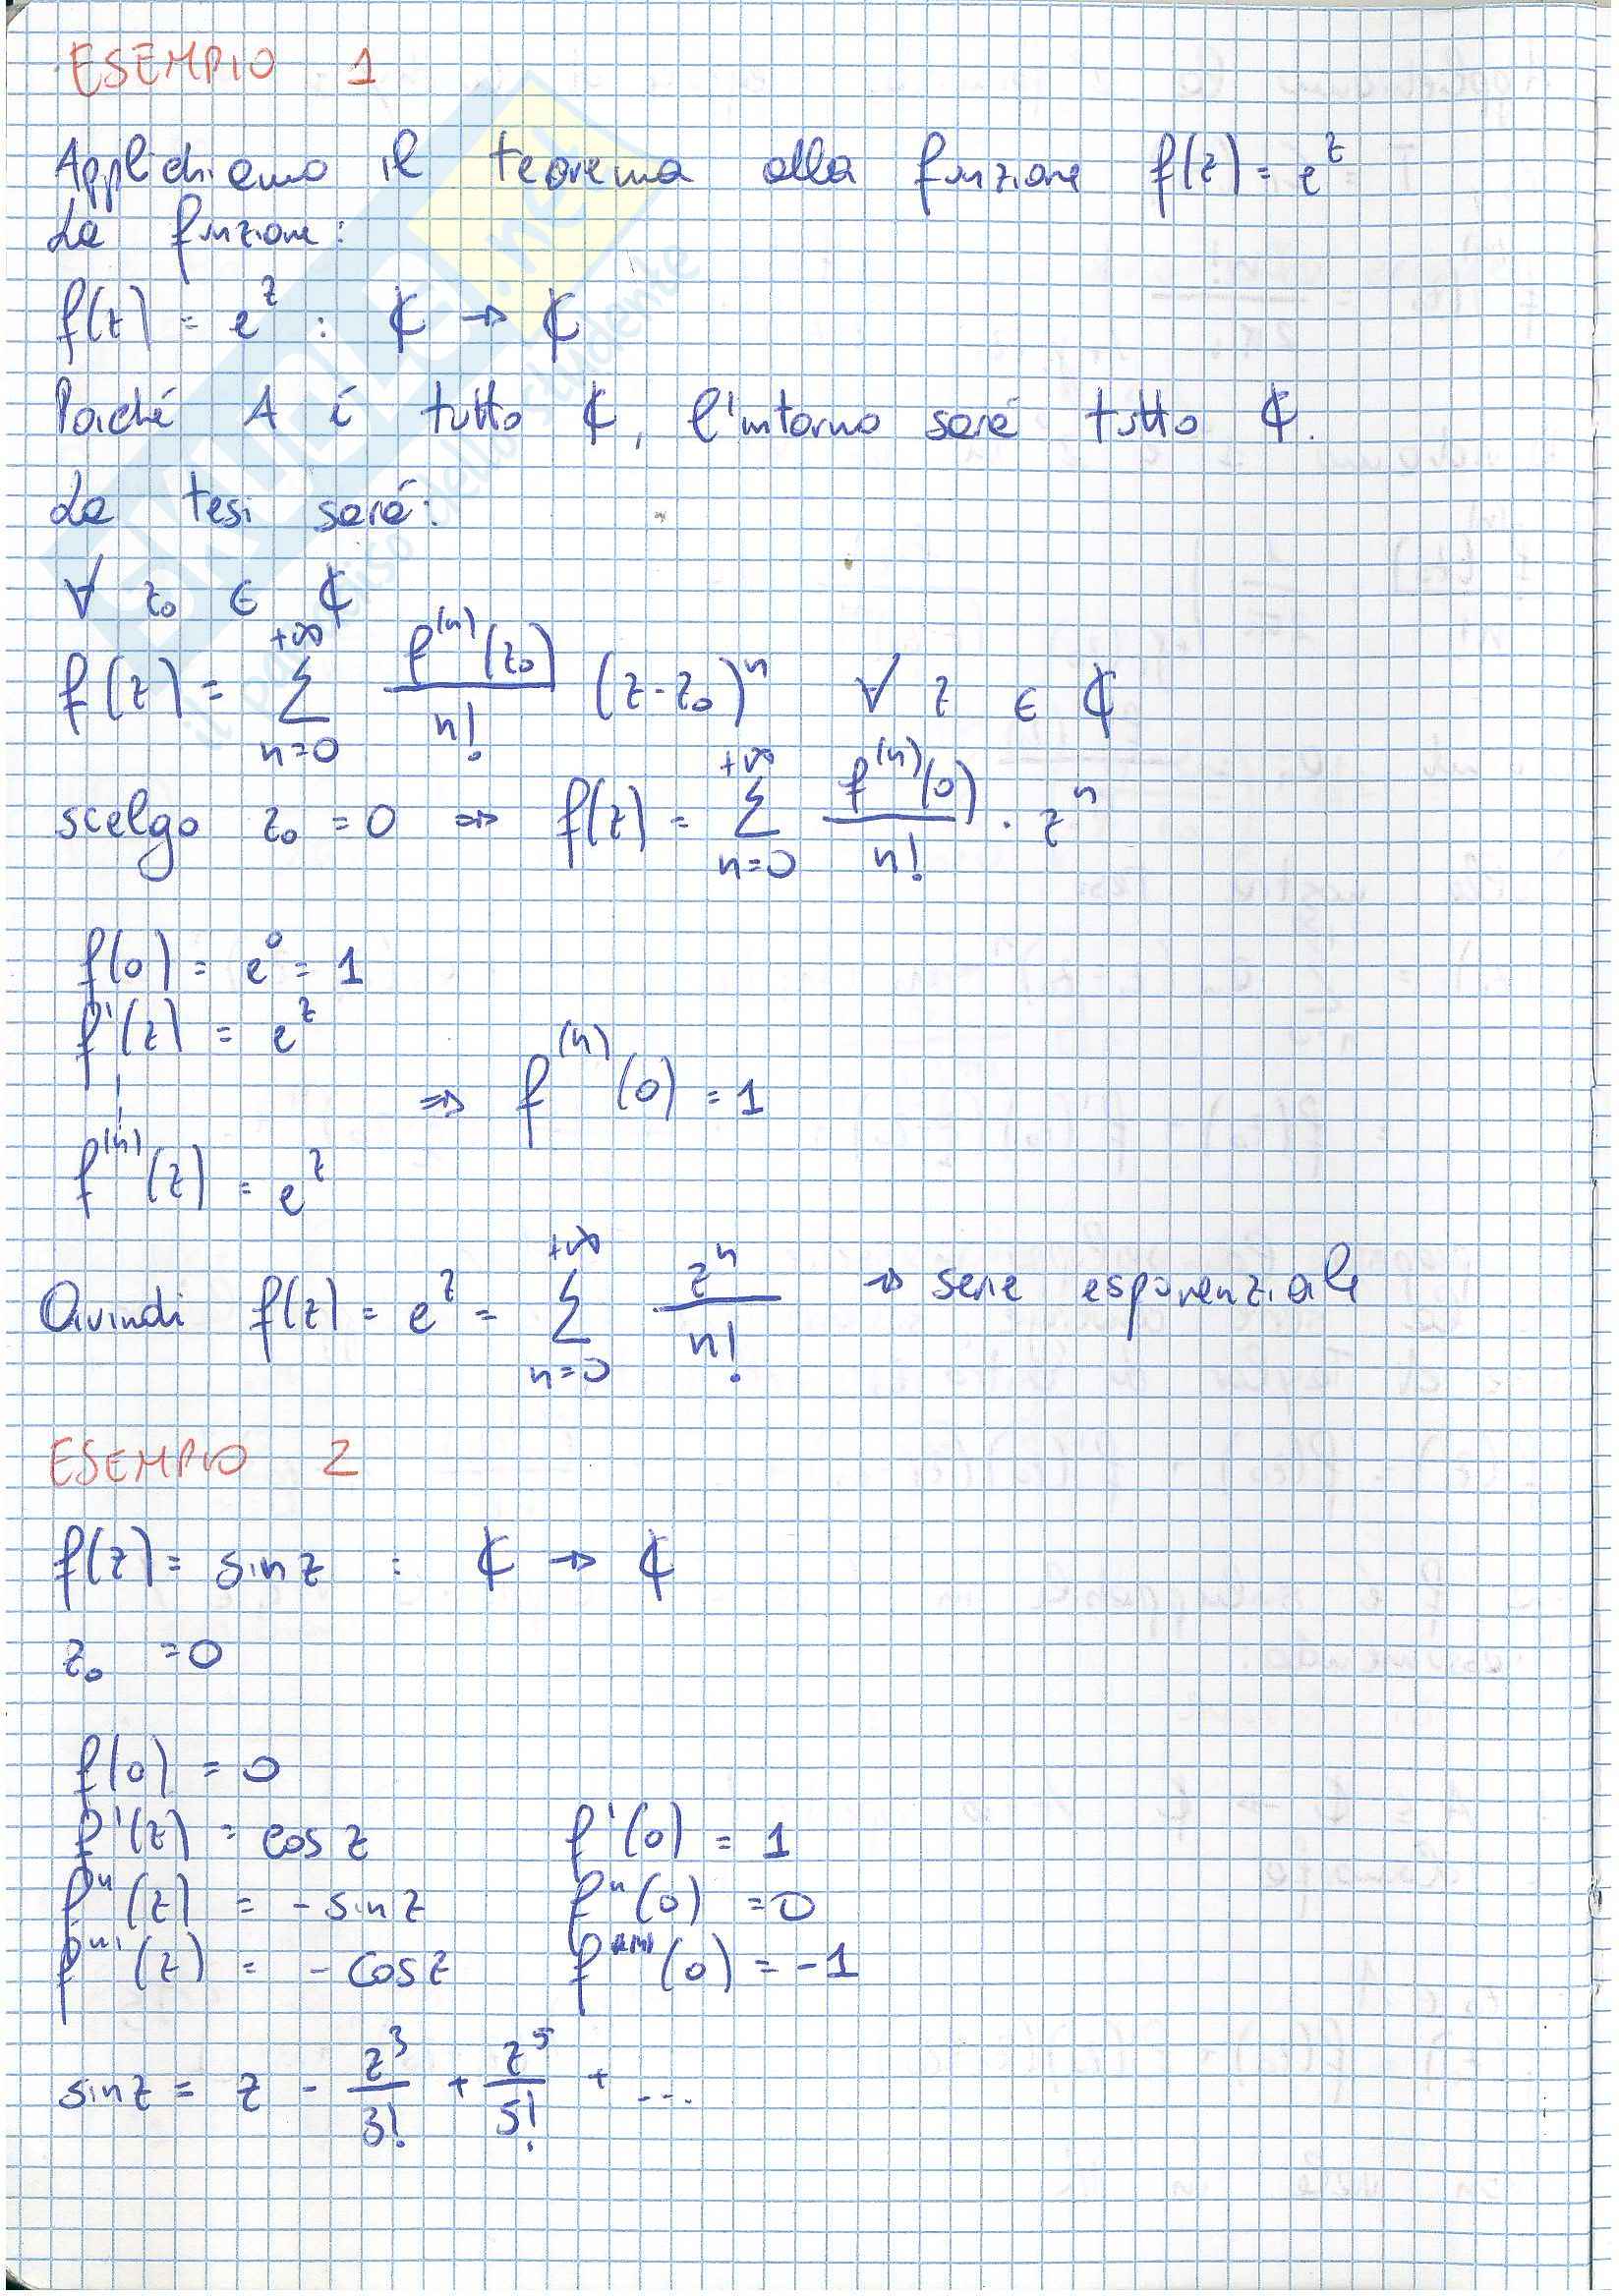 ESEMPIO 1
Applichiamo il teorema alla funzione f(z) = e^z
La funzione:
f(z) = e^z : ℂ → ℂ
Poiché A é tutto ℂ, l'intorno sará tutto ℂ.
La tesi sará:
∀ z₀ ∈ ℂ
f(z) = ∑_{n=0}^{+∞} f^{(n)}(z₀)/n! (z-z₀)^n ∀ z ∈ ℂ
scelgo z₀ = 0 ⇒ f(z) = ∑_{n=0}^{+∞} f^{(n)}(0)/n! · z^n
f(0) = e^0 = 1
f'(z) = e^z
⇒ f^{(n)}(0) = 1
f^{(n)}(z) = e^z
Quindi f(z) = e^z = ∑_{n=0}^{+∞} z^n/n! → serie esponenziale
ESEMPIO 2
f(z) = sin z : ℂ → ℂ
z₀ = 0
f(0) = 0
f'(z) = cos z f'(0) = 1
f''(z) = - sin z f''(0) = 0
f'''(z) = - cos z f'''(0) = -1
sin z = z - z^3/3! + z^5/5! + ...
SKUOLA.net
il paradiso dello studente